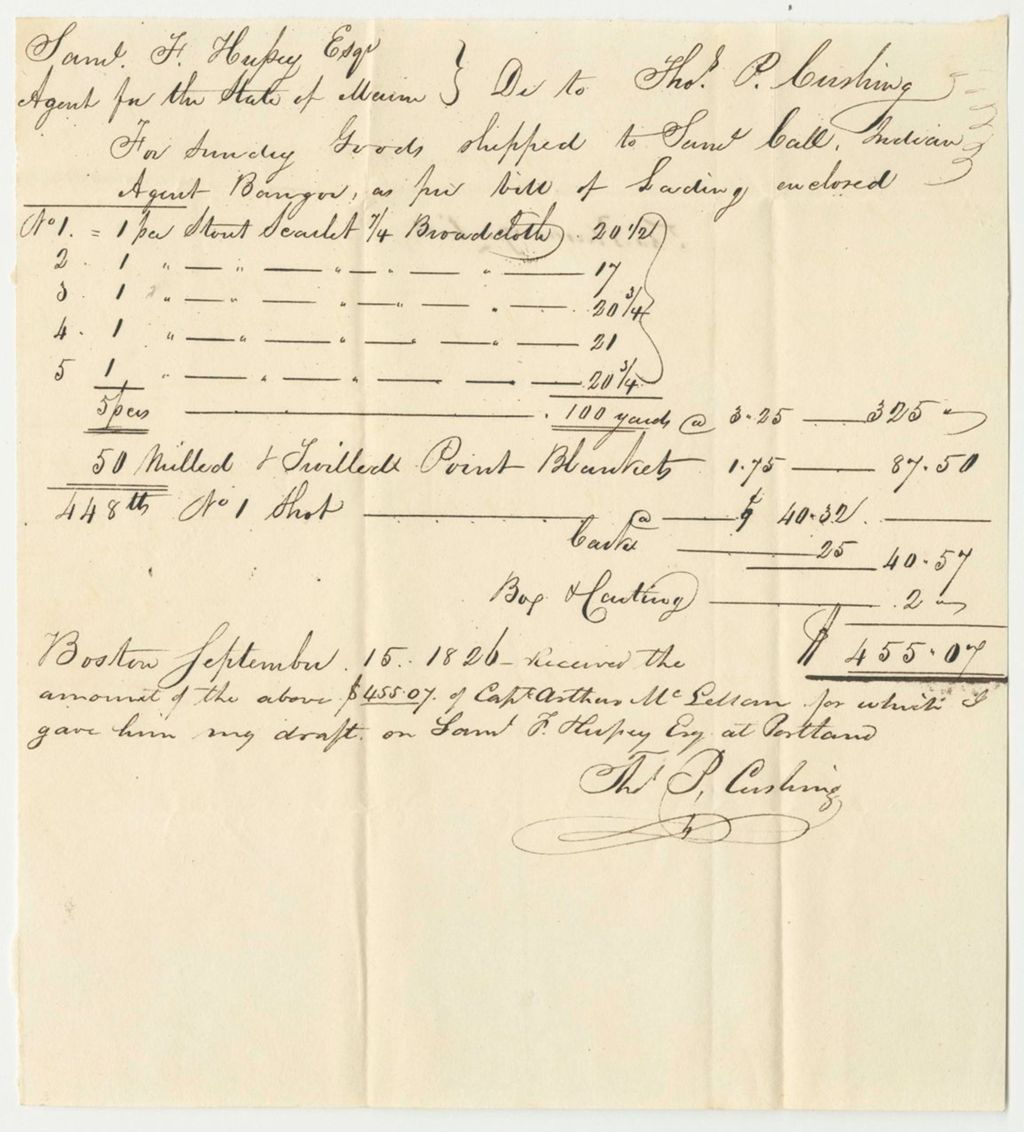 Saml. F. Hussey Esqr
Agent for the State of Maine } Dr to Thos. P. Cushing
For Sundry Goods shipped to Saml Call, Indian
Agent Bangor, as per bill of Lading enclosed
No 1. = 1 pce Stout Scarlet 7/4 Broadcloth . 20 1/2
2 . 1 " — " — " — " — " — 17
3 . 1 " — " — " — " — " — 20 3/4
4 . 1 " — " — " — " — " — 21
5 1 " — " — " — " — " — 20 3/4
5 pces — 100 yards @ 3.25 — 325 "
50 Milled & Twilled Point Blankets 1.75 — 87.50
448 lbs No 1 Shot — @ — 9 40.32 . —
Casks — 25 40.57
Box & Carting — 2 "
$ 455.07
Boston September . 15 . 1826 – Received the
amount of the above $455.07. of Capt Arthur McLellan for which I
gave him my draft on Saml F. Hussey Esq at Portland
Thos P. Cushing